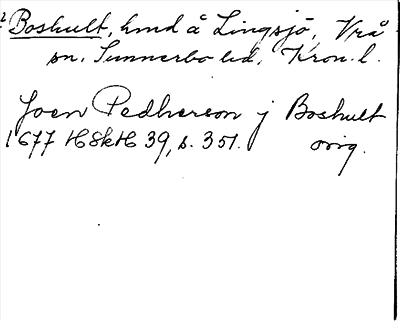 Boshult, hmd å Lingsjö, Vrå
sn, Sunnerbo hd, Kron. l.
Joen Pedherson j Boshult
1677 HSkH 39, s. 351. orig.